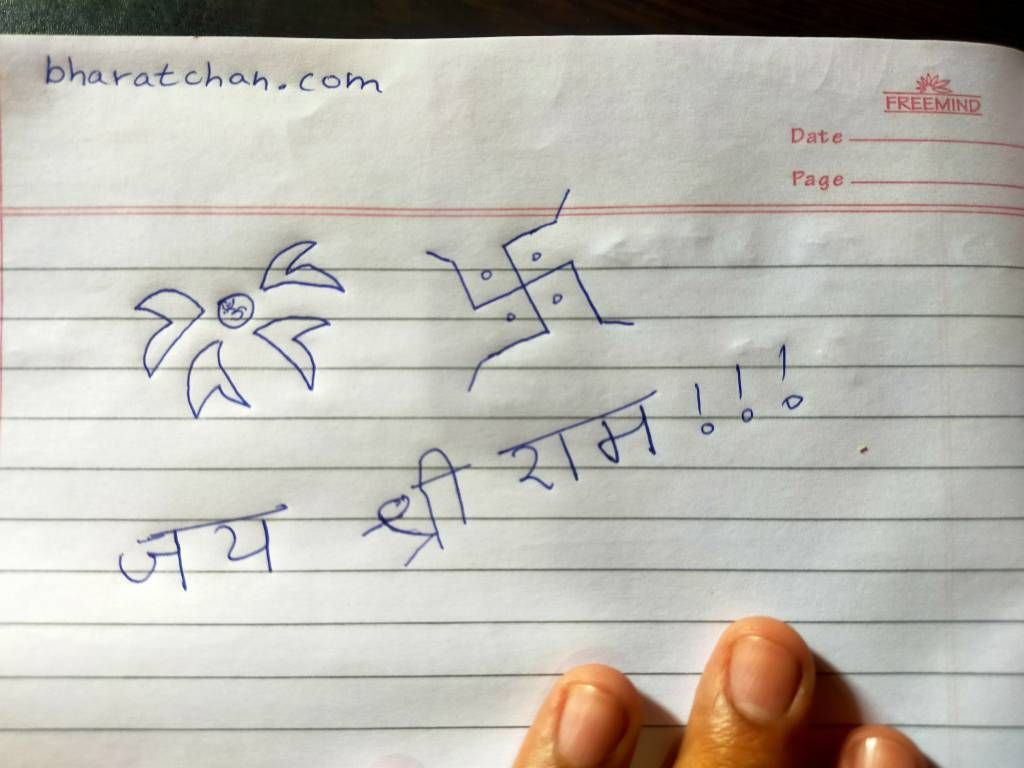 bharatchan.com
FREEMIND
Date
Page
जय श्री राम!!!